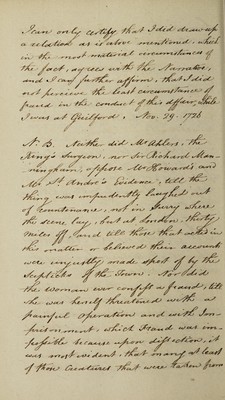 I can only certify that I did draw up
a relation as is above mentioned, which
in the most material circumstances of
the fact, agrees with the Narrator,
and I can further affirm, that I did
not perceive the least circumstance of
fraud in the conduct of this affair, while
I was at Guilford. Nov. 29. 1726
N. B. Neither did Mr Ahlers, the
King's Surgeon, nor Sir Richard Man-
ningham, oppose Mr Howard's and
Mr St. Andre's Evidence, till the
thing was impudently laughed out
of Countenance, not in Surry where
the Scene lay, but at London, thirty
miles off; and till those that acted in
this matter & believed their accounts
were unjustly made sport of by the
Scepticks of the Town. Nor did
the Woman ever confess a fraud, till
she was herself threatned with a
painful operation and with Im-
prisonment, which Fraud was im-
possible because upon dissection, it
was most evident, that many at least
of those Creatures that were taken from